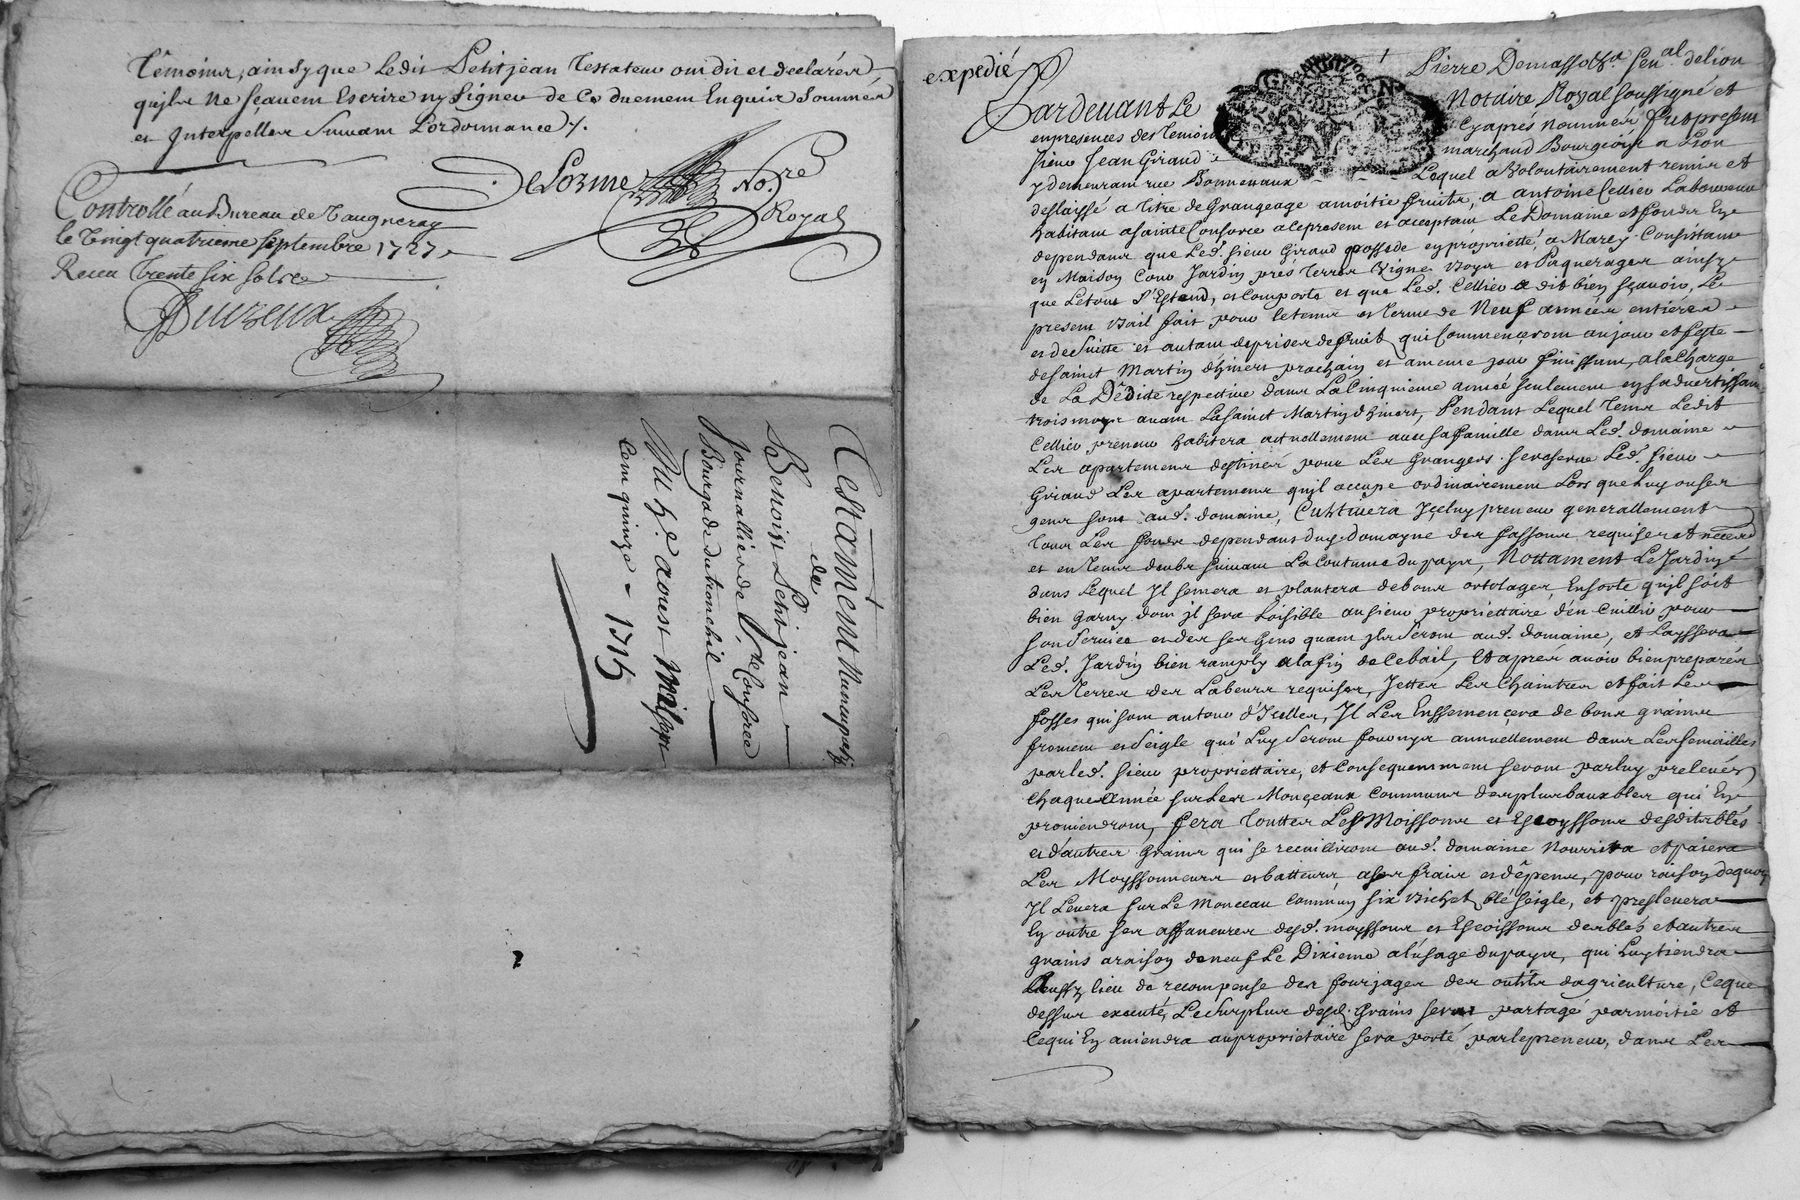 Témoins, ainsy que Ledit Petitjean Testateur ont dit et declarés
qu'jls ne scavent Escrire ny signer de Ce duement Enquis sommés
et Jnterpellés suivant l'ordonnance /.
Delorme No.re
Royal
Controllé au Bureau de Vaugneray
le vingt quatrieme septembre 1727
Receu Trente six sols
Testament Nuncupatif
du
Benoist Petitjean
Journallier de Ste. Consorce
Bourgade du tionchil
Du 7e aoust mil sept
Cent quinze - 1715
expedié
Pardevant Le Pierre Demasso sen.al de lion
Notaire Royal soussigné et
en presences des temoins Cyaprés nommés fut present
sieur Jean Giraud marchand Bourgeois a Lion
y demeurant rue Bonneveaux Lequel a volontairement remis et
deslaissé a titre de Grangeage a moitié fruits, a antoine Cellier Laboureur
habitant a sainte Consorce a ce present et acceptant Le Domaine et fonds En
dependans que Led. sieur Giraud possede en proprietté, a Marcy Consistant
en Maison Cour Jardin prés Terres Vignes Boys et Paquerages ainsy
que Le tout s'Estend, et comporte et que Led. Cellier a dit bien sçavoir, Le
present Bail fait pour le tems et terme de Neuf années entiéres
et de suitte et autant de prises de fruits qui Commenceront au jour et feste
de sainct Martin d'hivert prochain et a meme jour finissant, a la Charge
de La Dédite respective dans La Cinquieme année seulement en s'advertissant
trois moys avant La sainct Martin d'hivert, Pendant Lequel tems Ledit
Cellier preneur habitera actuellement avec sa famille dans Led. domaine
Les apartemens destinés pour Les Grangers se reserve Led. sieur
Giraud Les apartemens qu'jl occupe ordinairement Lors que Luy ou ses
gens sont aud. domaine, Cultivera Jceluy preneur generallement
tous Les fonds dependans duy. domayne des fassons requises et necess.
et en tems deubs suivant La Coutume du pays, Nottament Le Jardin
dans Lequel Jl semera et plantera de bons ortolages Ensorte qu'jl soit
bien garny dont jl sera Loisible au sieur propriettaire d'en Cuillir pour
son Service et de ses Gens quant jls seront aud. domaine, et Layssera
Led. Jardin bien ramply a la fin de Ce bail, Et aprés avoir bien preparés
Les terres des Labeurs requises, Jetter Les Chaintres et fait Les
fosses qui sont autour d'Jcelles, Jl Les Enssemencera de bons grains
froment et Seigle qui Luy seront fournys annuellement dans Les semailles
par led. sieur propriettaire, et Consequemment seront par luy prelevés
Chaque année sur Les Monceaux Communs des plus baux bles qui En
proviendront, fera touttes Les Moissons et Escoyssons desdits blés
et d'autres grains qui se recuilliront aud. domaine nourrira et paiera
Les Moyssonneurs et batteurs a ses fraix et dêpens, pour raison de quoy
Jl Levera sur Le Monceau Commun six Bichet blé seigle, et preslevera
En outre ses affaneures desd. moyssons et Escoissons desblés et autres
grains a raison de neuf Le Dixieme a l'usage du pays, qui Luy tiendra
aussy lieu de recompense des fourjages des outils dagriculture, Ce que
dessus executé, Le surplus desd. Grains sera partagé par moitié et
Ce qui En aviendra au proprietaire sera porté par le preneur, dans Les